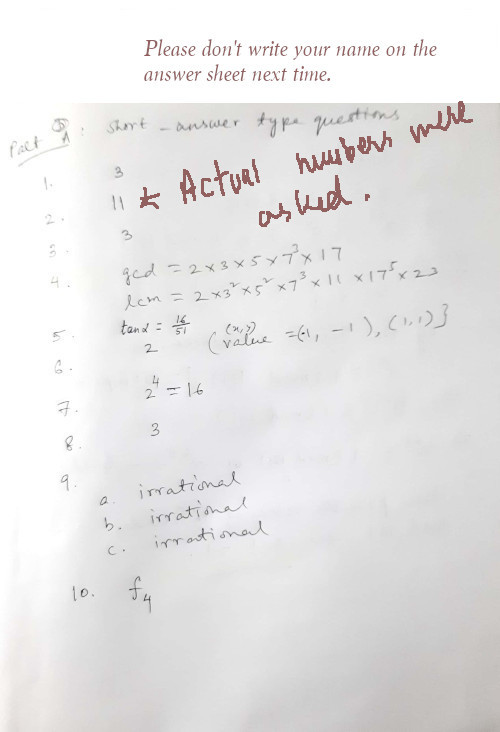 Please don't write your name on the
answer sheet next time.
Part A : Short - answer type questions
1. 3
2. 11 * Actual numbers were
asked.
3. 3
4. gcd = 2 x 3 x 5 x 7³ x 17
lcm = 2 x 3² x 5² x 7³ x 11 x 17⁵ x 23
5. tan α = 16/51
6. 2 ( (x,y) value = (-1, -1), (1,1) }
7. 2⁴ = 16
8. 3
9.
a. irrational
b. irrational
c. irrational
10. f₄